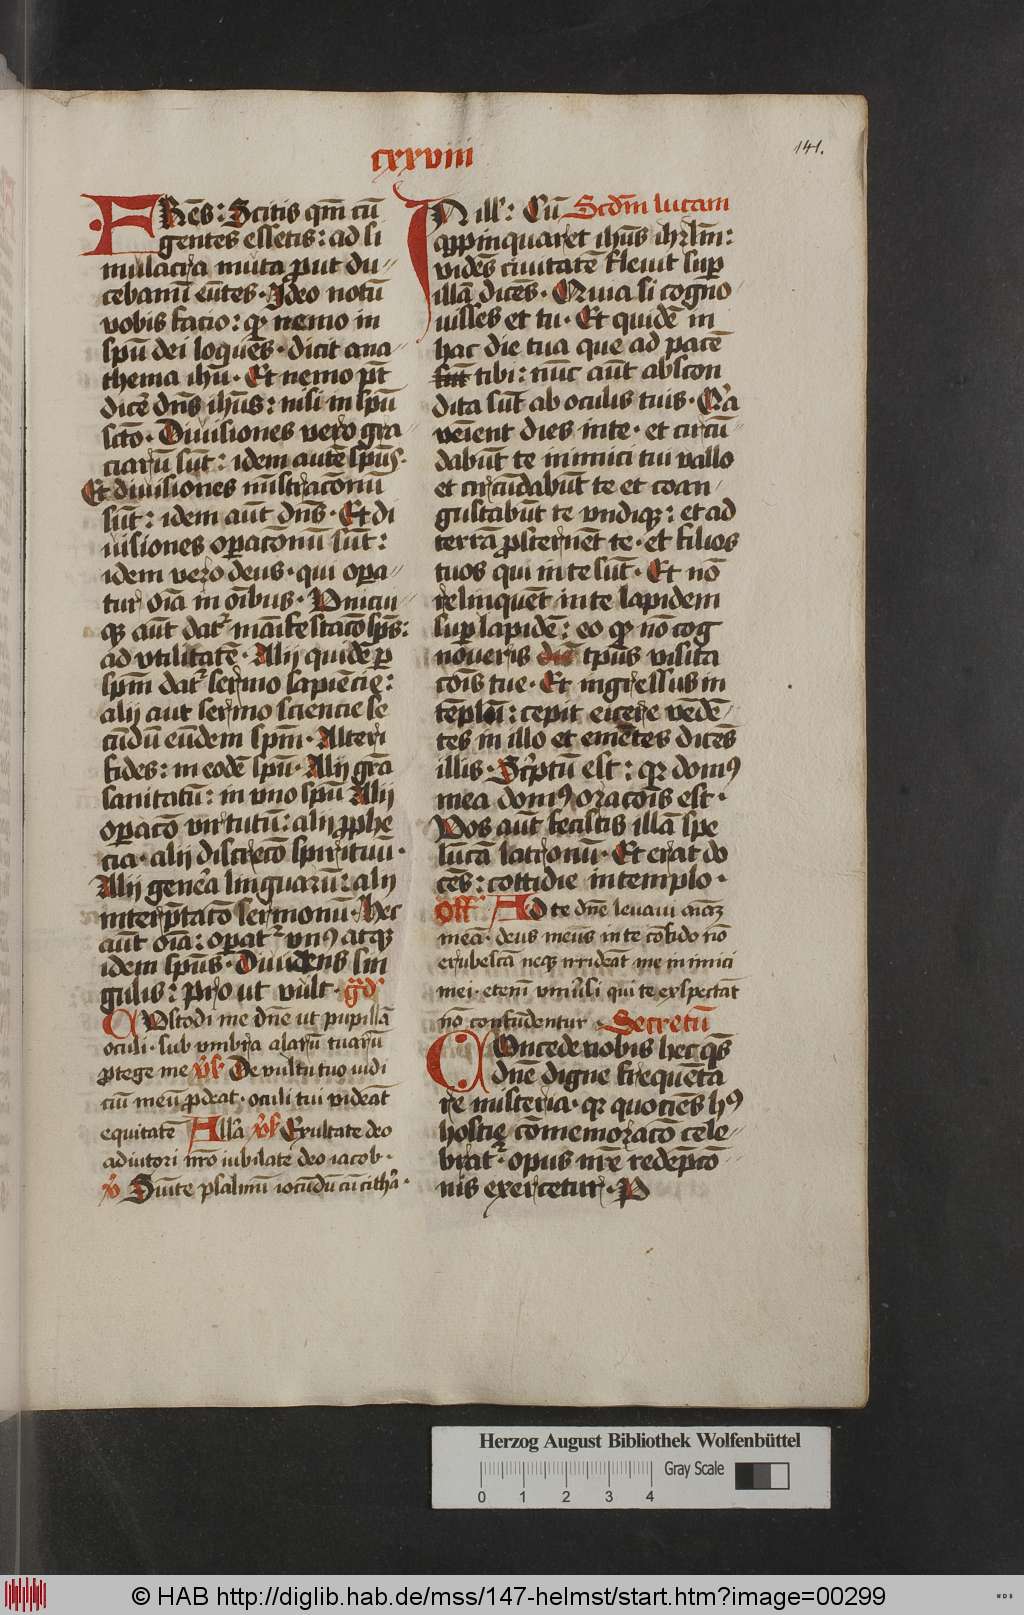 cxxviii
141.
FRēs: Scitis qm̄ cū
gentes essetis: ad si
mulacra muta ꝓut du
cebami eūtes. Ideo notū
vobis facio: qꝫ nemo in
spū dei loquēs. dicit ana
thema ihū. Et nemo pt̄
dicē dn̄s ihūs: nisi in spū
scto. Divisiones vero gra
ciarū sūt: idem autē spūs.
Et divisiones mīstracōnū
sūt: idem aūt dn̄s. Et di
visiones oꝑacōnū sūt:
idem vero deus. qui oꝑa
tur oīa in oībus. Unicui
qꝫ aūt datᷣ manifestacō spūs:
ad utilitatē. Alij quidē ꝑ
spm̄ datᷣ sermo sapiēcię:
alij aut sermo sciencie se
cūdū eūdem spm̄. Alteri
fides: in eodē spū. Alij grā
sanitatū: in uno spū Alij
oꝑacō virtutū: alij ꝓphe
cia. alij discrecō spirituū.
Alij genēa linguarū: alij
interp̄tacō sermonū. Hec
aūt oīa: oꝑatᷣ unꝰ atqꝫ
idem spūs. Dividens sin
gulis: pro ut vult. gͣdͣ
CUstodi me dn̄e ut pupillā
oculi. sub umbra alarū tuarū
ꝓtege me v̓s̓ De vultu tuo iudi
ciū meū ꝓdeat. oculi tui videāt
equitatē Allā v̓s̓ Exultate deo
adiutori nr̄o iubilate deo iacob.
v̓ Sumite psalmū iocūdū cū cithͣ.
IN ill̓: Cū Scdm̄ lucam
aꝓpinquaret ihūs ihrlm̄:
vidēs civitatē flevit suꝑ
illā dicēs. Quia si cogno
visses et tu. Et quidē in
hac die tua que ad pacē
sūt tibi: nūc aūt abscon
dita sūt ab oculis tuis. Qͥa
veīent dies in te. et circū
dabūt te inimici tui vallo
et circūdabūt te et coan
gustabūt te undiqꝫ: et ad
terrā ꝓsternēt te. et filios
tuos qui in te sūt. Et nō
relinquēt in te lapidem
suꝑ lapidē: eo qꝫ nō cog
noveris diē tp̄us visita
cōis tue. Et ingressus in
templū: cepit eicere vēdē
tes in illo et emētes dicēs
illis. Scͥptū est: qꝛ domꝰ
mea domꝰ oracōis est.
Vos aūt fecistis illā spe
lūcā latronū. Et erat do
cēs: cottidie in templo.
Off̓ AD te dn̄e levavi aīaꝫ
meā. deus meus in te cōfido nō
erubescā neqꝫ irrideāt me inimici
mei. etenī univ̓si qui te exspectāt
nō confūdentur. Secretū
COncede nobis hec qs̄
dn̄e digne frequēta
re misteria. qꝛ quociēs hꝰ
hostię cōmemoracō cele
bratᷣ. opus nr̄e redēpcō
nis exercetur. P
Herzog August Bibliothek Wolfenbüttel
Gray Scale
0 1 2 3 4
© HAB http://diglib.hab.de/mss/147-helmst/start.htm?image=00299